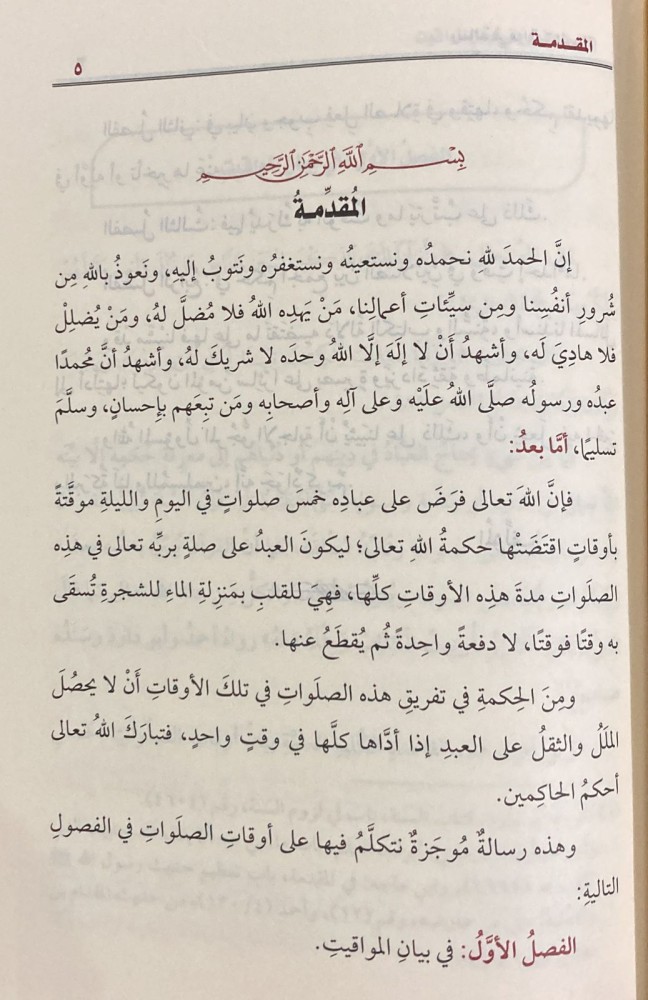 المقدمة
٥
بِسْمِ اللَّهِ الرَّحْمَٰنِ الرَّحِيمِ
المُقدِّمةُ
إنَّ الحمدَ للهِ نحمدُه ونستعينُه ونستغفرُه ونَتوبُ إليهِ، ونَعوذُ باللهِ مِن
شُرورِ أنفُسِنا ومِن سيِّئاتِ أعمالِنا، مَنْ يَهدِه اللهُ فلا مُضلَّ لهُ، ومَنْ يُضلِلْ
فلا هاديَ لَه، وأشهدُ أَنْ لا إلَهَ إلَّا اللهُ وحدَه لا شريكَ لهُ، وأشهدُ أنَّ مُحمدًا
عبدُه ورسولُه صلَّى اللهُ علَيْه وعلى آلِه وأصحابِه ومَن تبِعَهم بإِحسانٍ، وسلَّمَ
تسليمًا، أمَّا بعدُ:
فإنَّ اللهَ تعالى فرَضَ على عبادِه خمسَ صلواتٍ في اليومِ والليلةِ موقَّتةً
بأوقاتٍ اقتَضَتْها حكمةُ اللهِ تعالى؛ ليكونَ العبدُ على صلةٍ بربِّه تعالى في هذِه
الصلَواتِ مدةَ هذِه الأوقاتِ كلِّها، فهِيَ للقلبِ بمَنزِلةِ الماءِ للشجرةِ تُسقَى
به وقتًا فوقتًا، لا دفعةً واحِدةً ثُم يُقطَعُ عنها.
ومِنَ الحِكمةِ في تفريقِ هذه الصلَواتِ في تلكَ الأوقاتِ أَنْ لا يحصُلَ
المَلَلُ والثقلُ على العبدِ إذا أدَّاها كلَّها في وقتٍ واحدٍ، فتبارَكَ اللهُ تعالى
أحكمُ الحاكِمين.
وهذه رسالةٌ مُوجَزةٌ نتكلَّمُ فيها على أوقاتِ الصلَواتِ في الفصولِ
التاليةِ:
الفصلُ الأوَّلُ: في بيانِ المواقيتِ.